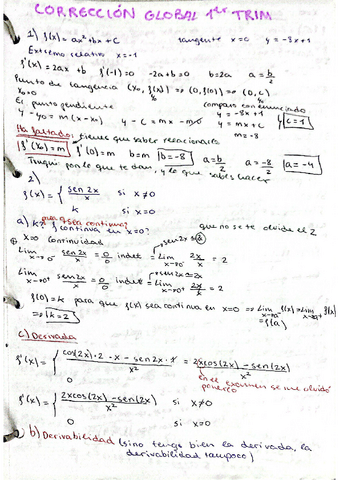 CORRECCIÓN GLOBAL 1er TRIM
1) f(x) = ax² + bx + c tangente x=0 y=-8x+1
Extremo relativo x=-1
f'(x) = 2ax + b f'(-1)=0 -2a+b=0 b=2a a=b/2
Punto de tangencia (x₀, f(x₀)) ⇒ (0, f(0)) ⇒ (0, c)
x₀=0
Ec punto pendiente comparo con enunciado
y - y₀ = m(x-x₀) y - c = mx - m·0 y = -8x+1
y = mx + c c=1
m=-8
Ha faltado: tienes que saber relacionarlo
f'(x₀)=m f'(0)=m b=m b=-8 a=b/2 a=-8/2 a=-4
lo que te dan, y lo que sabes hacer
2)
f(x) = { sen 2x/x si x≠0
k si x=0
a) k para q sea continua? f continua en x=0? que no se te olvide el 2
x=0 continuidad sen2x
Lim x→0⁻ sen2x/x = 0/0 indet = Lim x→0⁻ 2x/x = 2
sen2x≈2x
Lim x→0⁺ sen2x/x = 0/0 indet = Lim x→0⁺ 2x/x = 2
f(0)=k para que f(x) sea continua en x=0 ⇒ Lim x→0⁻ f(x) = Lim x→0⁺ f(x)
⇒ k=2 = f(a)
c) Derivada
f'(x) = { cos(2x)·2·x - sen2x·1/x² = 2xcos(2x)-sen(2x)/x²
0 en el examen se me olvidó
f'(x) = { 2xcos(2x)-sen(2x)/x² si x≠0
0 si x=0
b) Derivabilidad (si no tengo bien la derivada, la
derivabilidad tampoco)